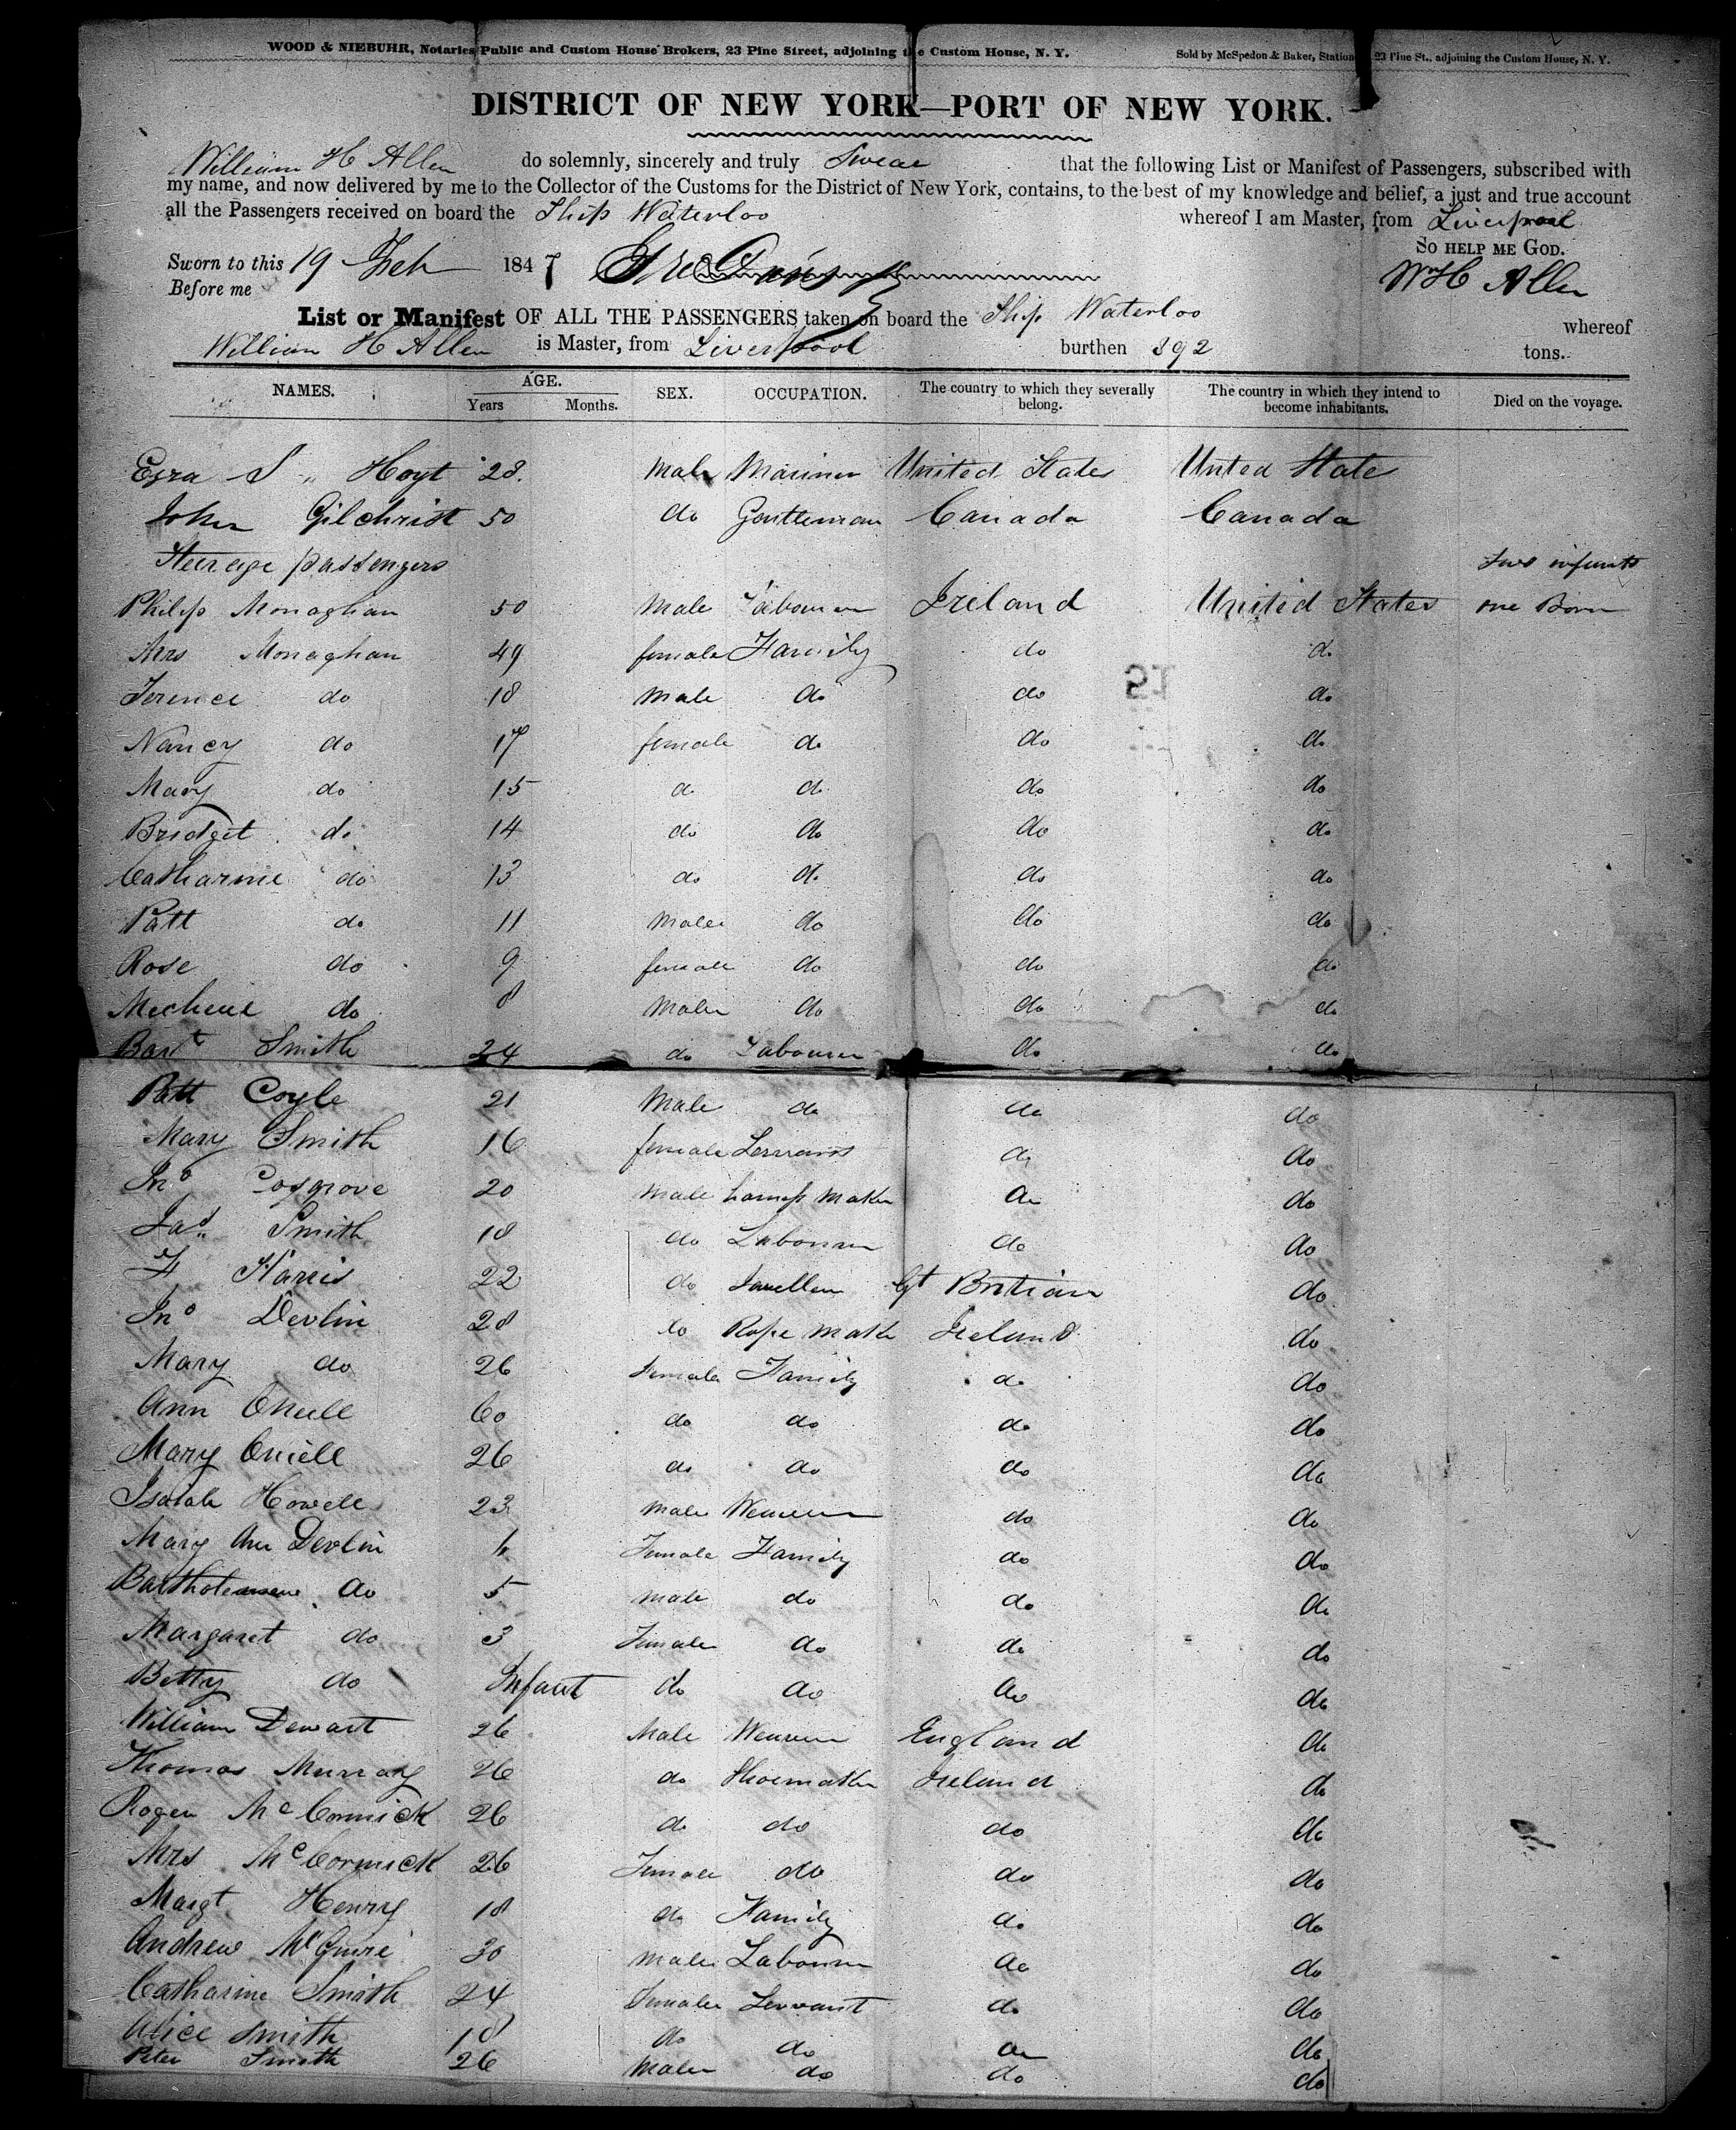 WOOD & NIEBUHR, Notaries Public and Custom House Brokers, 23 Pine Street, adjoining the Custom House, N. Y. Sold by McSpedon & Baker, Station 23 Pine St., adjoining the Custom House, N. Y.
DISTRICT OF NEW YORK—PORT OF NEW YORK.
William H Allen do solemnly, sincerely and truly Swear that the following List or Manifest of Passengers, subscribed with
my name, and now delivered by me to the Collector of the Customs for the District of New York, contains, to the best of my knowledge and belief, a just and true account
all the Passengers received on board the Ship Waterloo whereof I am Master, from Liverpool
SO HELP ME GOD.
Sworn to this 19 Feb 1847
Before me
WH Allen
List or Manifest OF ALL THE PASSENGERS taken on board the Ship Waterloo whereof
William H Allen is Master, from Liverpool burthen 892 tons.
NAMES. AGE. SEX. OCCUPATION. The country to which they severally belong. The country in which they intend to become inhabitants. Died on the voyage.
Years Months.
Ezra S Hoyt 28. Male Mariner United States United State
John Gilchrist 50 do Gentleman Canada Canada
Steerage passengers two infants
Philip Monaghan 50 Male Labourer Ireland United States one Born
Mrs Monaghan 49 female Family do do
Terence do 18 Male do do do
Nancy do 17 female do do do
Mary do 15 do do do do
Bridget do 14 do do do do
Catharine do 13 do do do do
Patt do 11 Male do do do
Rose do 9 female do do do
Micheal do 8 Male do do do
Bart Smith 24 do Labourer do do
Patt Coyle 21 Male do do do
Mary Smith 16 female Servant do do
Jno Cosgrove 20 Male harness Maker do do
Jas Smith 18 do Labourer do do
H Harris 22 do Gt Britian do
Jno Devlin 28 do Rope Maker Ireland do
Mary do 26 Female Family do do
Ann Oneill 60 do do do do
Mary Oniell 26 do do do do
Isaiah Howell 23 Male Weaver do do
Mary Ann Devlin 6 Female Family do do
Bartholemew do 5 Male do do do
Margaret do 3 Female do do do
Betty do Infant do do do do
William Dewart 26 Male Weaver England do
Thomas Murray 26 do Shoemaker Ireland do
Roger McCormick 26 do do do do
Mrs McCormick 26 Female do do do
Margt Henry 18 do Family do do
Andrew McGuire 30 Male Labourer do do
Catharine Smith 24 Female Servant do do
Alice Smith 18 do do do do
Peter Smith 26 Male do do do